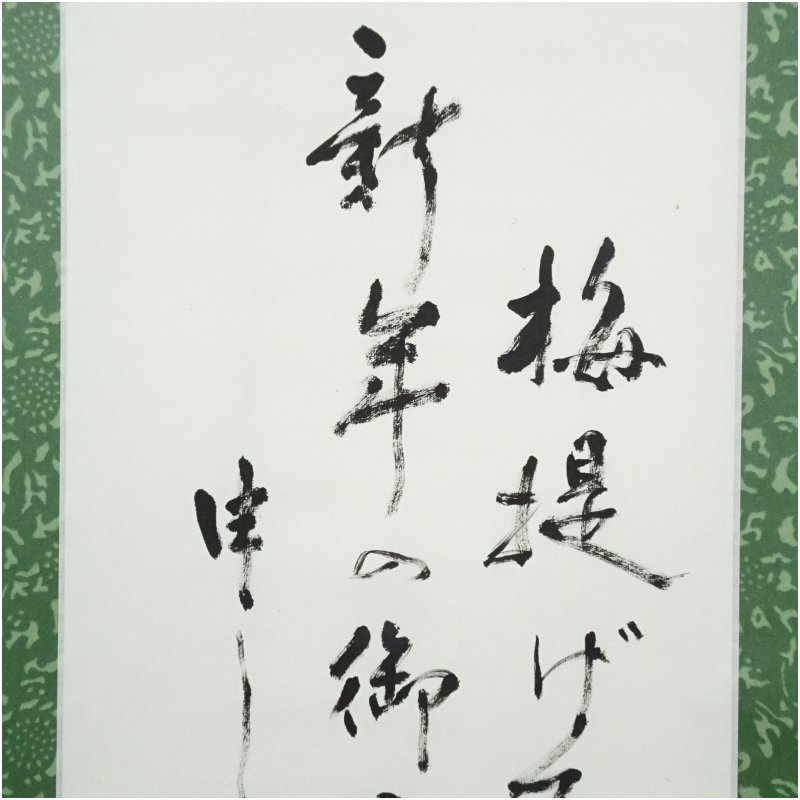 梅提げて
新年の御
申し